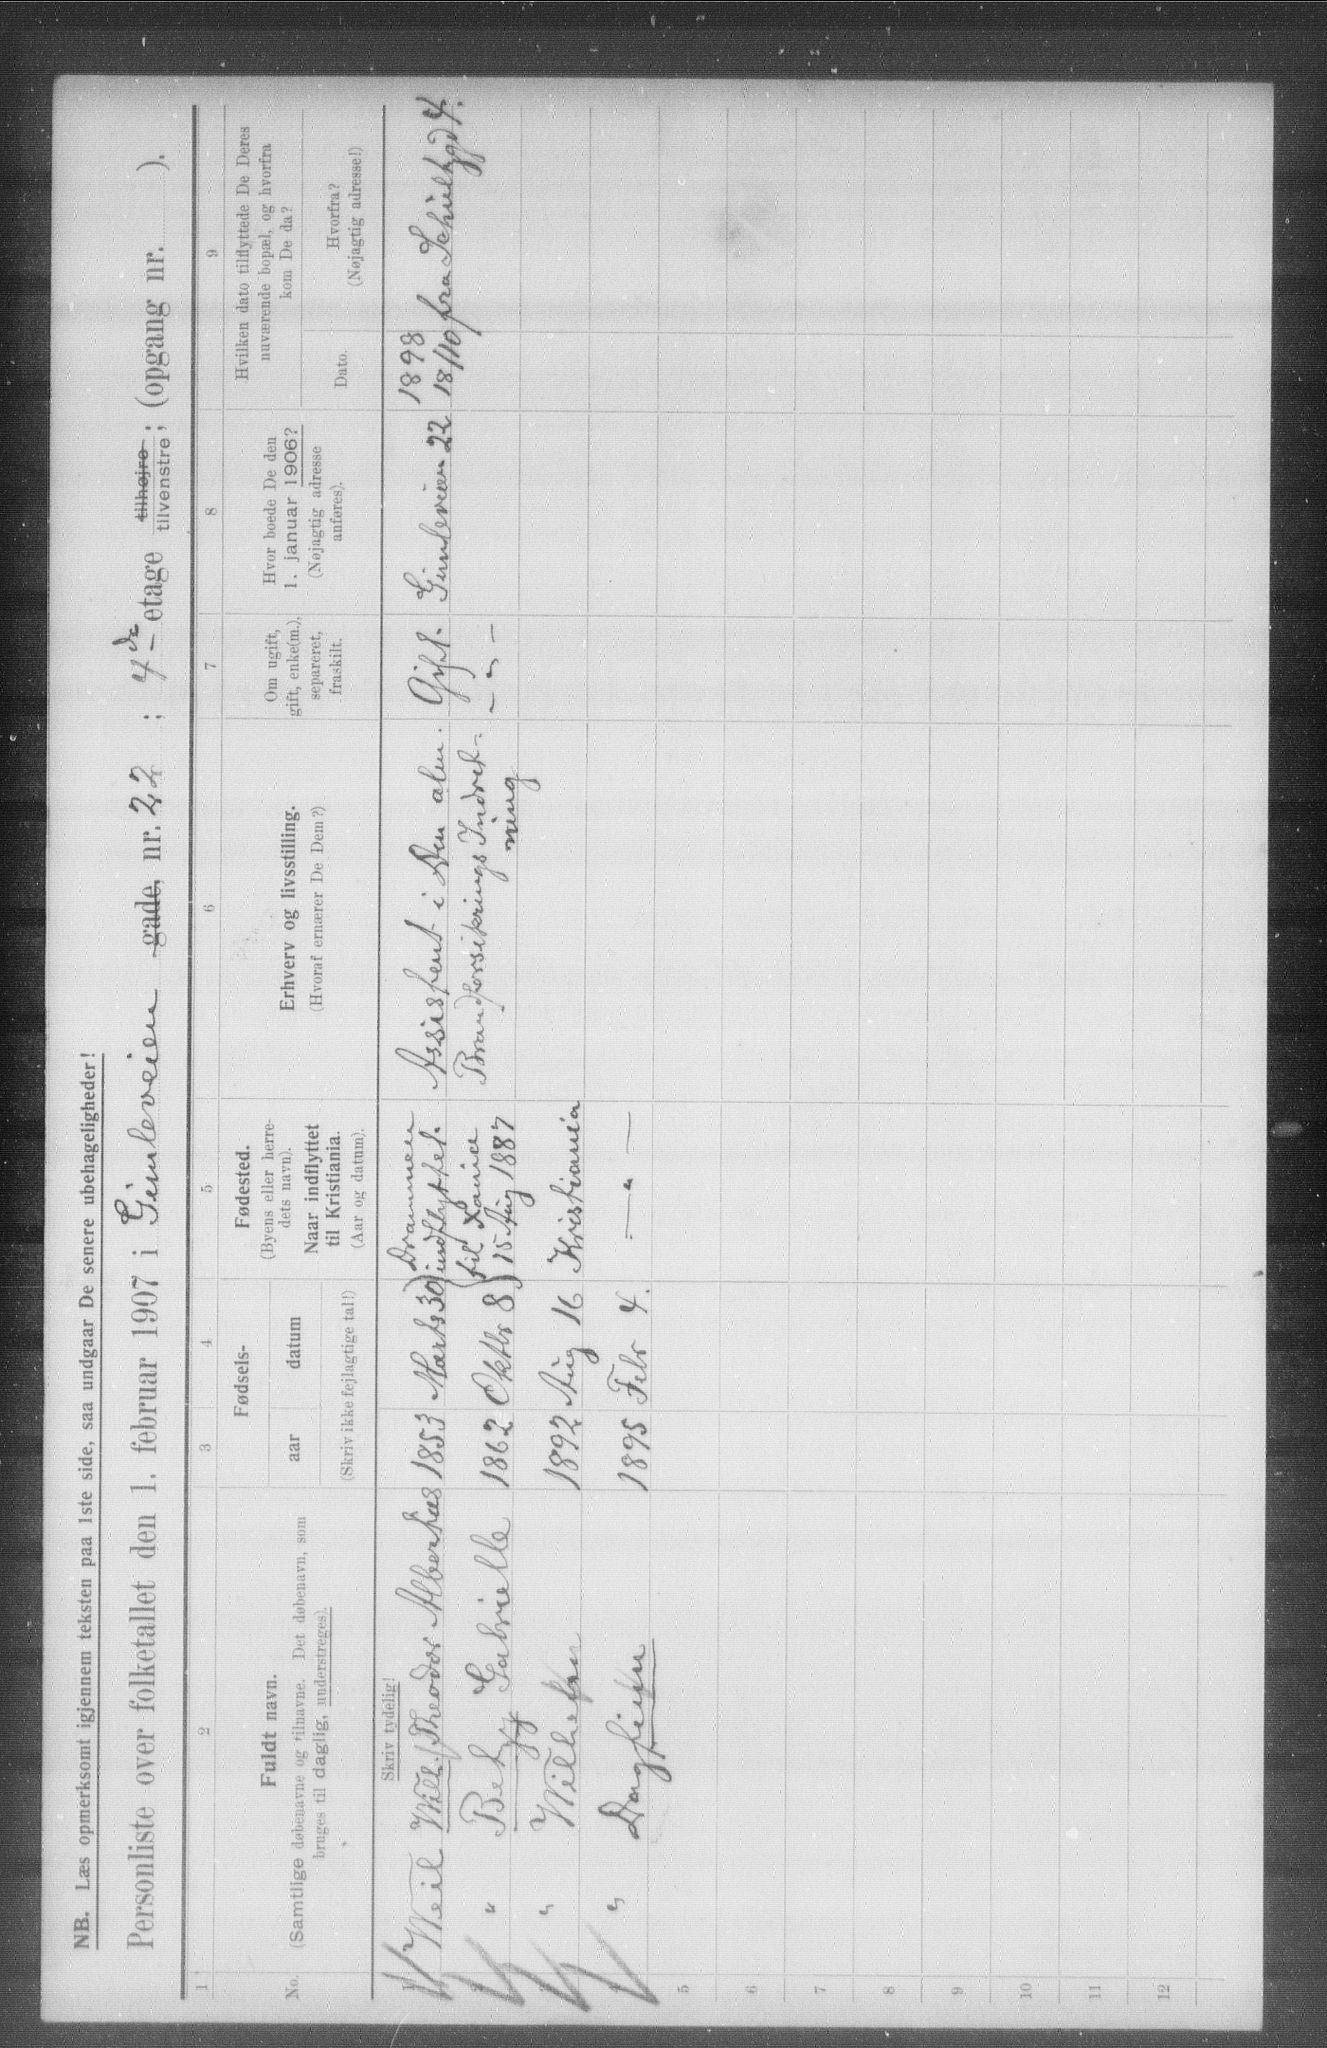 NB. Læs opmerksomt igjennem teksten paa 1ste side, saa undgaar De senere ubehageligheder!
Personliste over folketallet den 1. februar 1907 i Gimleveien gade, nr. 22 ; 4de etage tilhøjre tilvenstre ; (opgang nr. ).
1 2 3 4 5 6 7 8 9
No.
Fuldt navn.
(Samtlige døbenavne og tilnavne. Det døbenavn, som
bruges til daglig, understreges).
Fødsels-
aar datum
(Skriv ikke fejlagtige tal!)
Fødested.
(Byens eller herre-
dets navn).
Naar indflyttet
til Kristiania.
(Aar og datum).
Erhverv og livsstilling.
(Hvoraf ernærer De Dem?)
Om ugift,
gift, enke(m.),
separeret,
fraskilt.
Hvor boede De den
1. januar 1906?
(Nøjagtig adresse
anføres).
Hvilken dato tilflyttede De Deres
nuværende bopæl, og hvorfra
kom De da?
Dato.
Hvorfra?
(Nøjagtig adresse!)
Skriv tydelig!
1 Weil Wilh. Theodor Albertus 1853 Marts 30 Drammen
indflyttet. Assistent i Den alm. Gift. Gimleveien 22 1898
18/10 fra Schultzgd 4.
2 " Betzy Gabrielle 1862 Oktbr 8 til
15 Aug 1887 Brandforsikrings Indret-
ning — " —
3 " Wilhelm 1892 Aug 16 Kristiania
4 " Dagfinn 1895 Febr 4. — " —
5
6
7
8
9
10
11
12